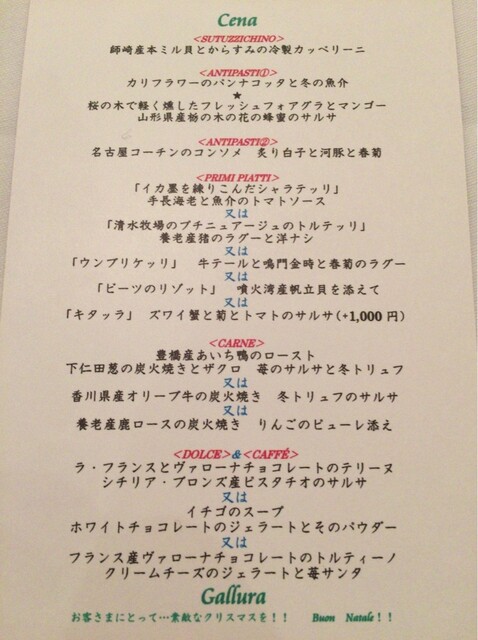 Cena
<SUTUZZICHINO>
師崎産本ミル貝とからすみの冷製カッペリーニ
<ANTIPASTI①>
カリフラワーのパンナコッタと冬の魚介
★
桜の木で軽く燻したフレッシュフォアグラとマンゴー
山形県産栃の木の花の蜂蜜のサルサ
<ANTIPASTI②>
名古屋コーチンのコンソメ　炙り白子と河豚と春菊
<PRIMI PIATTI>
「イカ墨を練りこんだシャラテッリ」
手長海老と魚介のトマトソース
又は
「清水牧場のプチニュアージュのトルテッリ」
養老産猪のラグーと洋ナシ
又は
「ウンブリケッリ」　牛テールと鳴門金時と春菊のラグー
又は
「ビーツのリゾット」　噴火湾産帆立貝を添えて
又は
「キタッラ」　ズワイ蟹と菊とトマトのサルサ(+1,000 円)
<CARNE>
豊橋産あいち鴨のロースト
下仁田葱の炭火焼きとザクロ　苺のサルサと冬トリュフ
又は
香川県産オリーブ牛の炭火焼き　冬トリュフのサルサ
又は
養老産鹿ロースの炭火焼き　りんごのピューレ添え
<DOLCE>&<CAFFÉ>
ラ・フランスとヴァローナチョコレートのテリーヌ
シチリア・ブロンズ産ピスタチオのサルサ
又は
イチゴのスープ
ホワイトチョコレートのジェラートとそのパウダー
又は
フランス産ヴァローナチョコレートのトルティーノ
クリームチーズのジェラートと苺サンタ
Gallura
お客さまにとって…素敵なクリスマスを！！　Buon　Natale！！